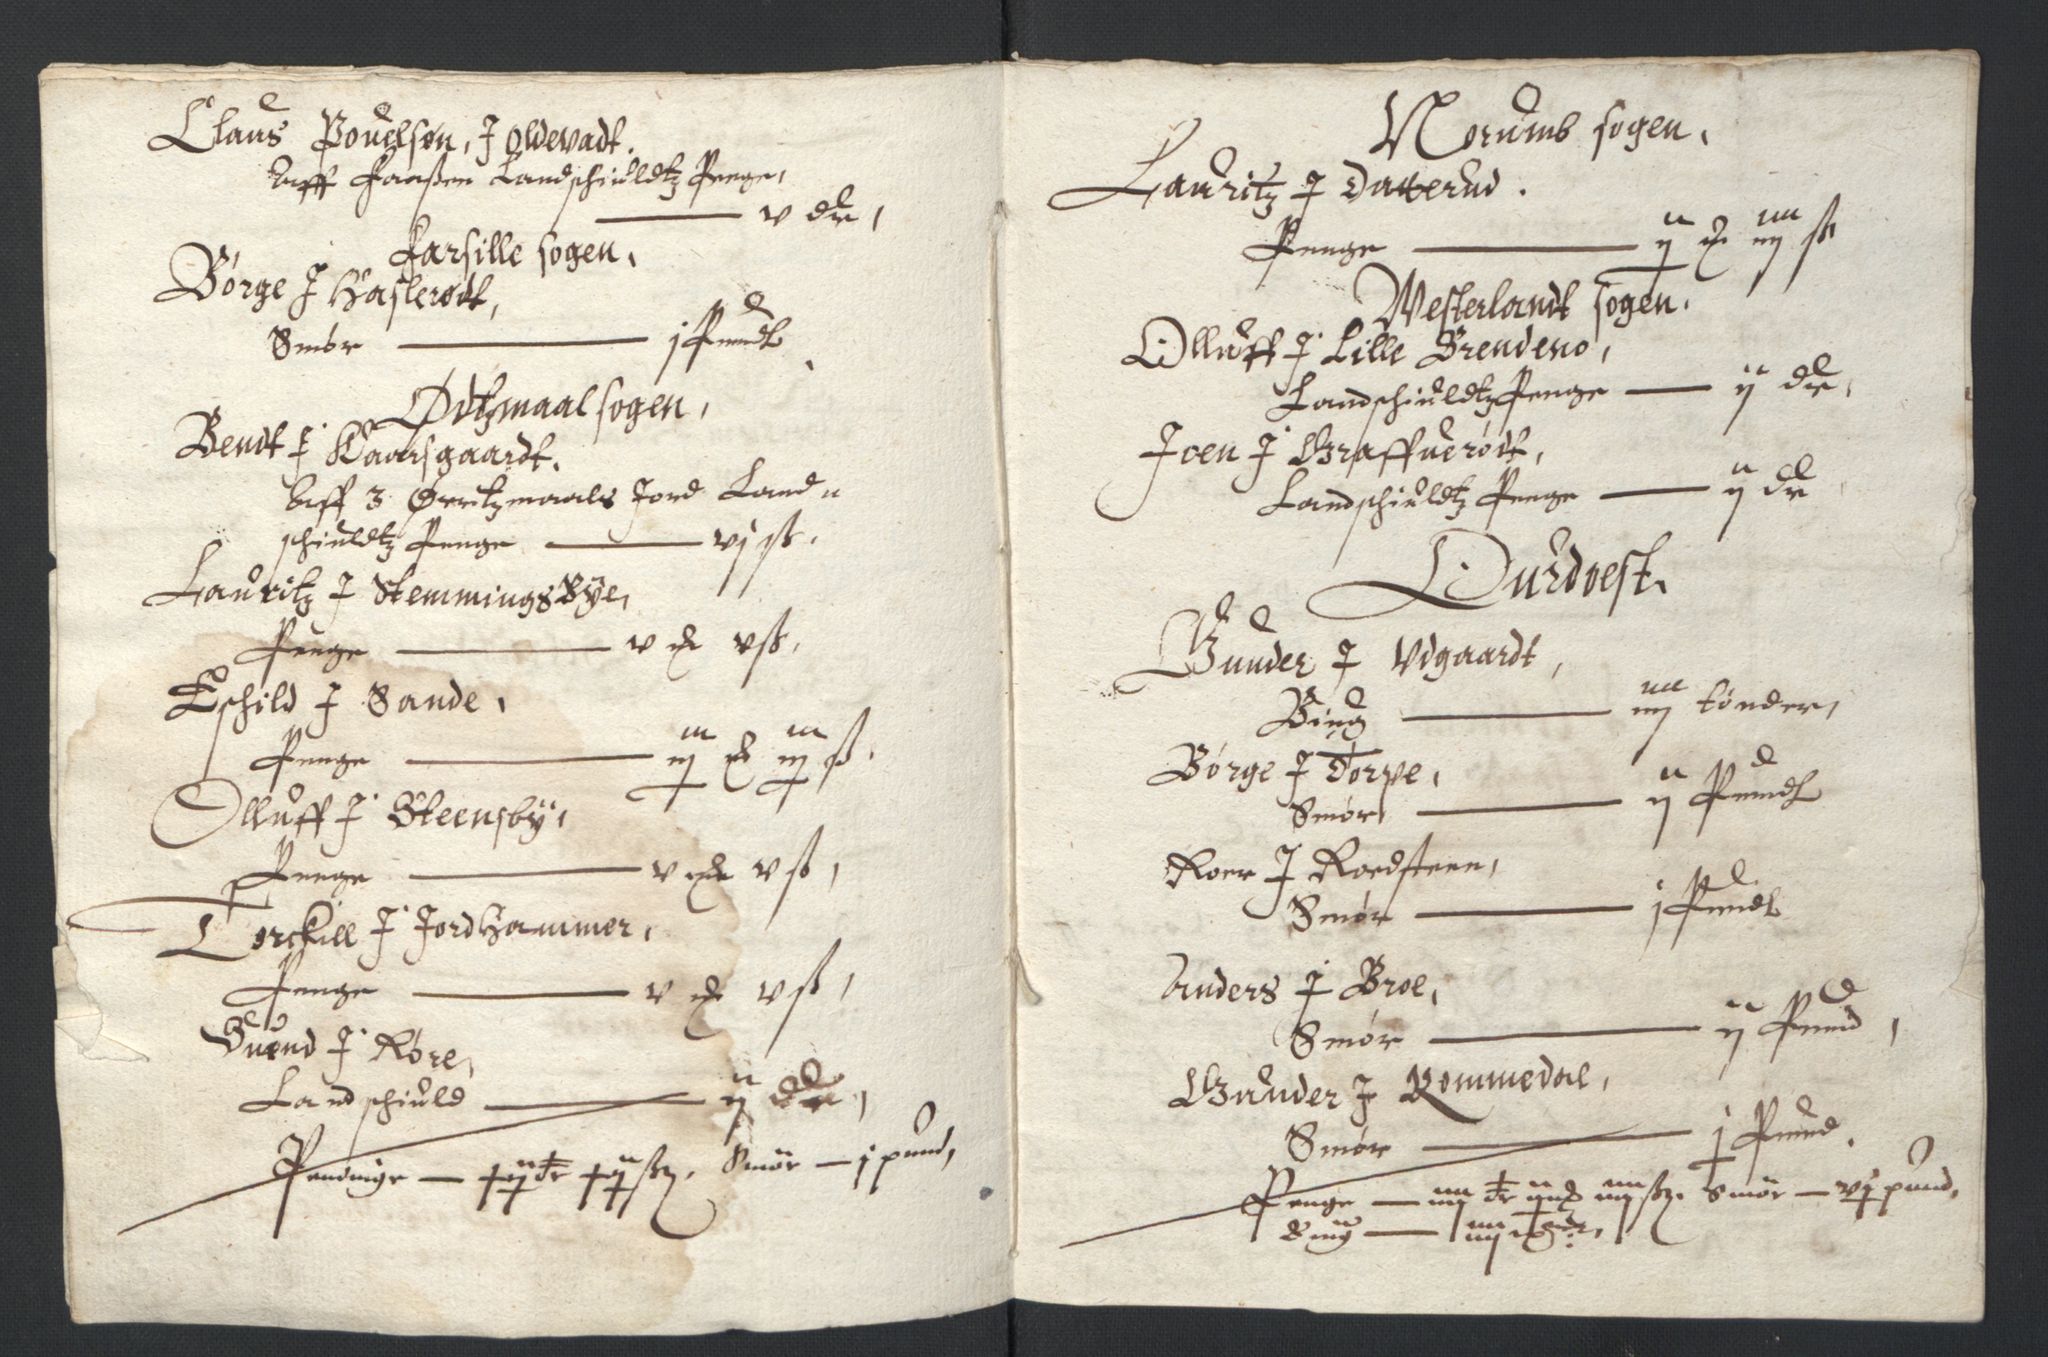 Claus Pouelsøn, J Oldevadt.
Aff Foassen Landschiuldtz Penge,
— v dlr,
Forsille sogen,
Børge J Haslerødt,
Smør — j Pundt
Ødtzmaal sogen,
Bendt J Kaarsgaardt,
Aff 3 Ørritzmaals Jord Land-
schiuldtz Penge — vj ß.
Lauritz J StemmingsBye,
Penge — v ɱ vß,
Eschild J Sande,
Penge — iij ɱ iij ß.
Olluff J Steensby,
Penge — v ɱ v ß,
Torckill J JordHammer,
Penge — v ɱ v ß,
Suend J Røre,
Landschiuld — ij dlr,
Pendinge — ij ß. Smør — j pund,
Norumb sogen,
Lauritz J Datterud.
Penge — ij ɱ iiij ß
Westerlandt sogen.
Olluff J Lille Brendemo,
Landschiuldtz Penge — ij dlr,
Joen J Graffuerødt,
Landschiuldtz Penge — ij dlr
Ourdoest.
Gunder J Vdgaardt,
Biug — iiij tønder,
Børge J Torpe,
Smør — ij Pundt
Roer J Roedsteen,
Smør — j Pundt
Anders J Broe,
Smør — ij Pund,
Gunder J Rommedal,
Smør — j Pund.
Penge — iiij dlr ij ɱ iiij ß. Smør — vj pund,
Biug — iiij tønder,